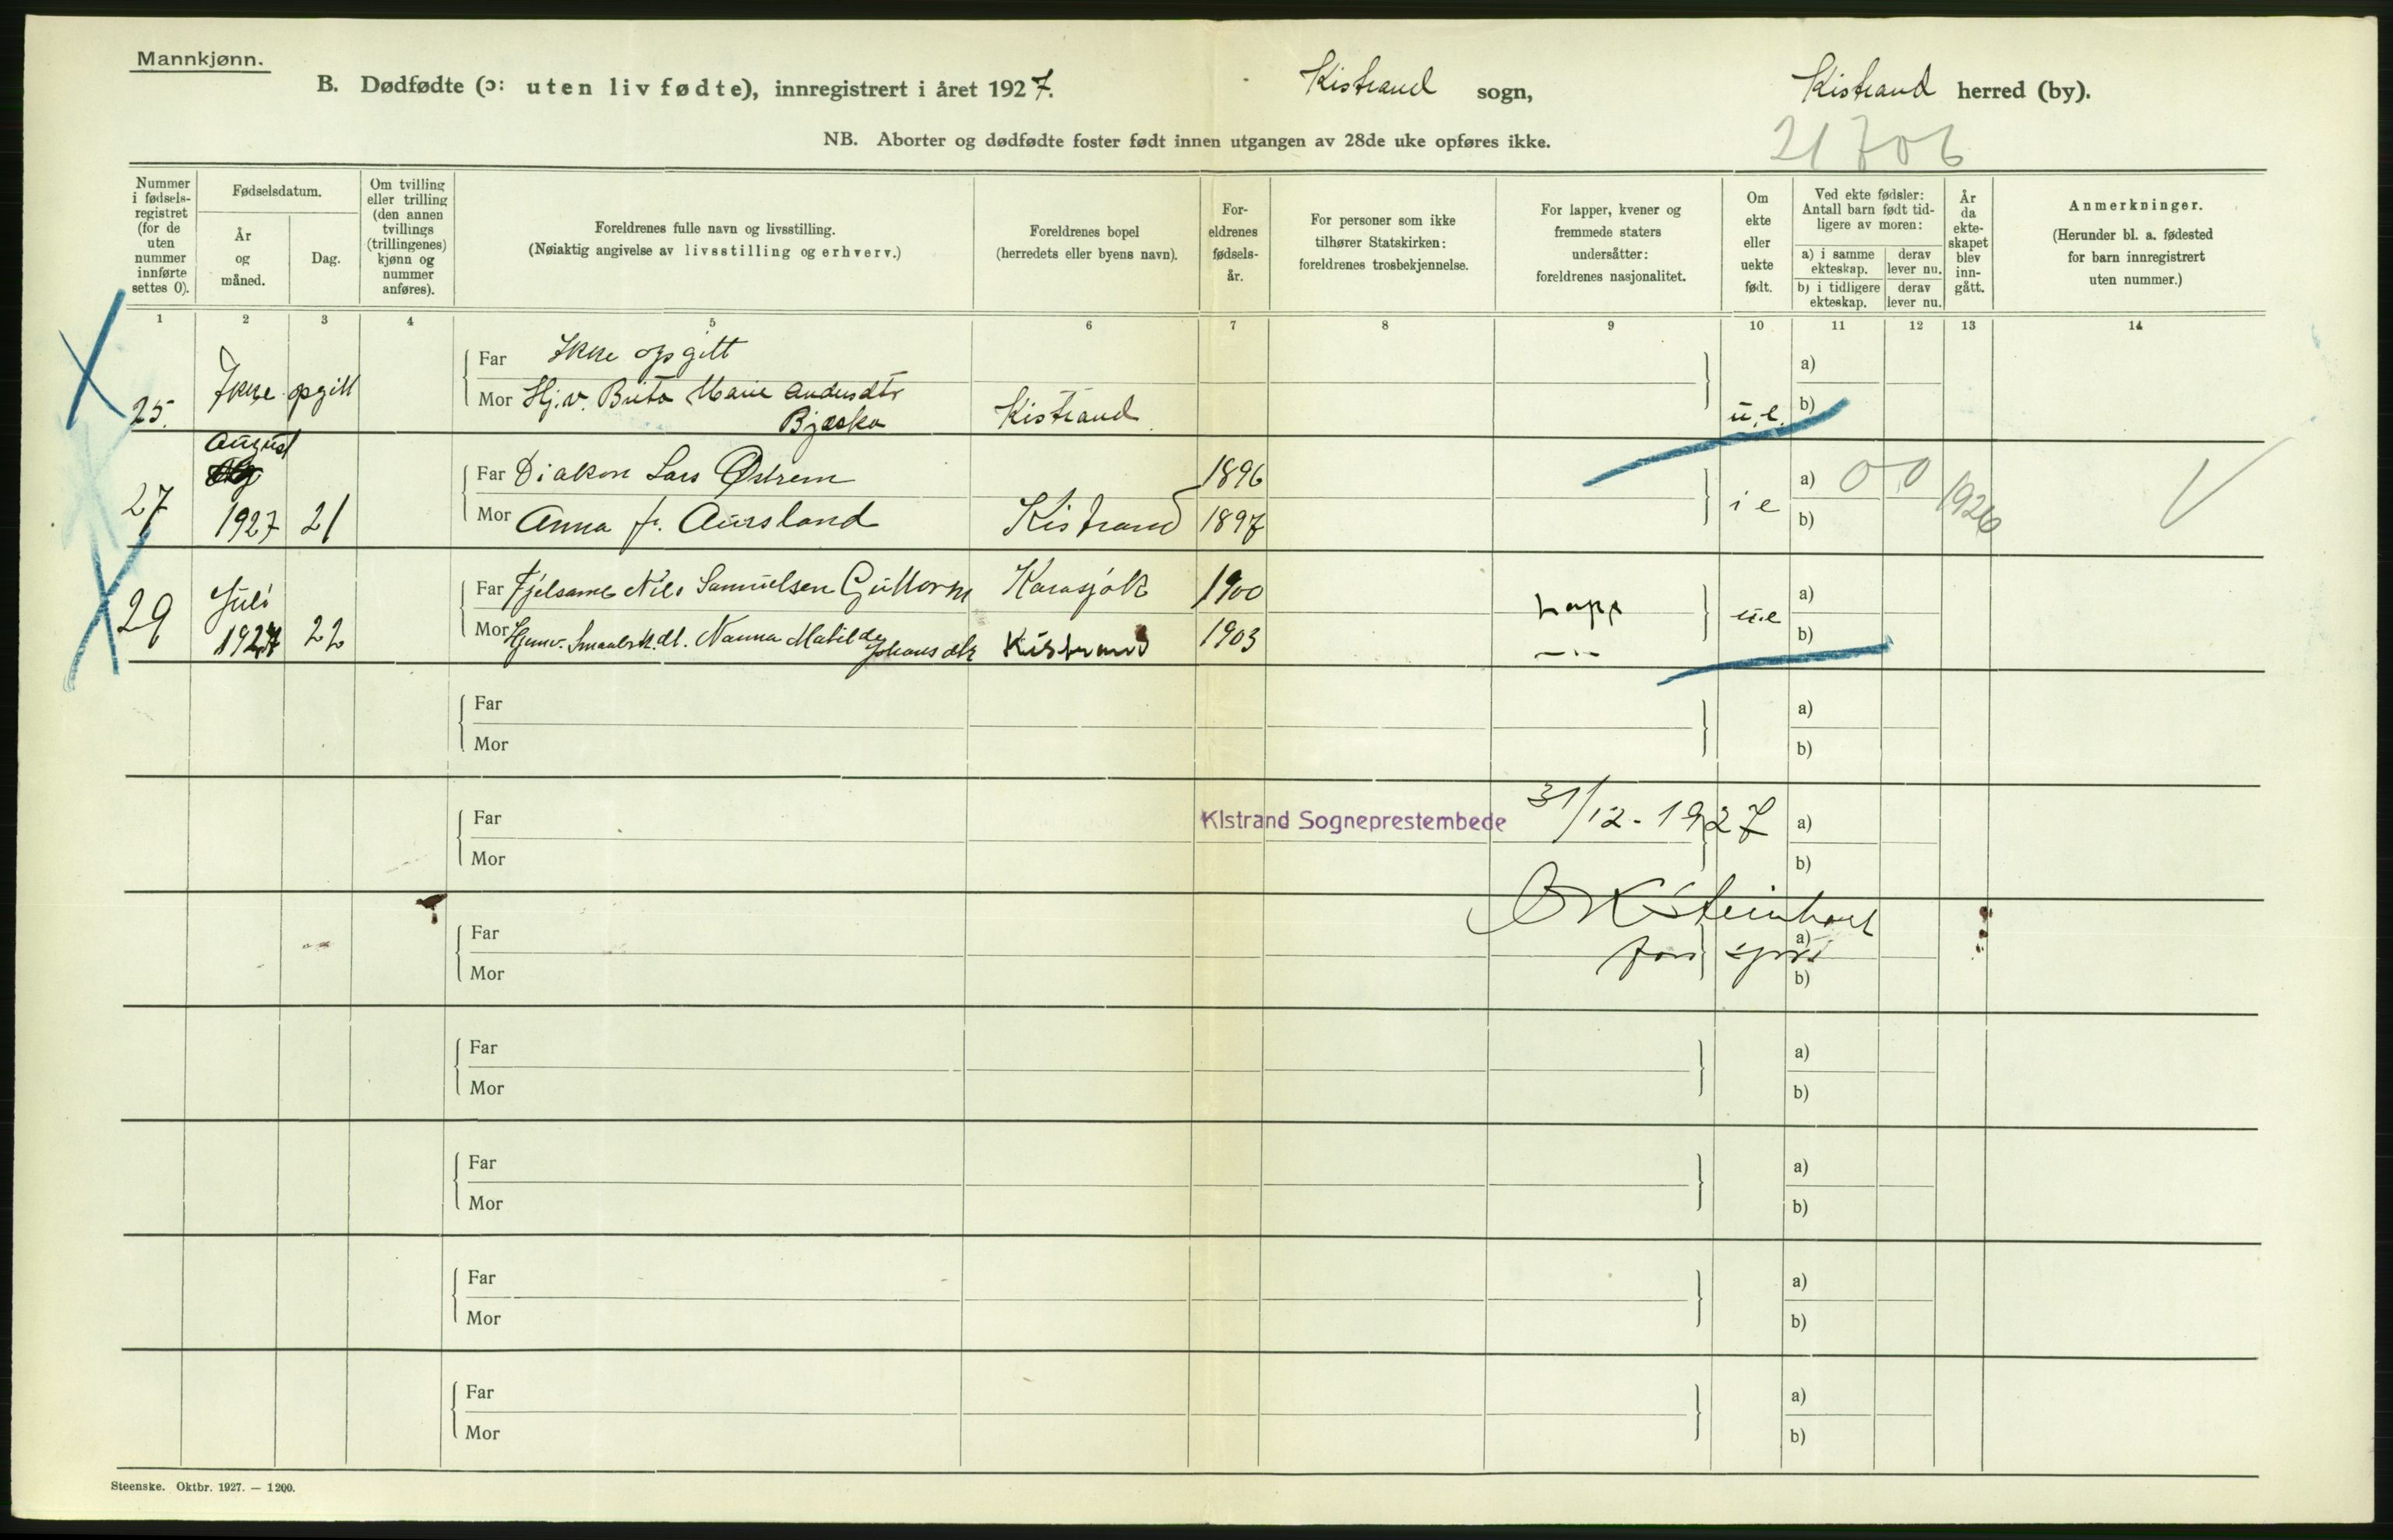 Mannkjønn.
B. Dødfødte (ɔ: uten liv fødte), innregistrert i året 1927. Kistrand sogn, Kistrand herred (by).
NB. Aborter og dødfødte foster født innen utgangen av 28de uke opføres ikke.
21706
Nummer i fødsels-registret (for de uten nummer innførte settes 0).
Fødselsdatum.
År og måned.
Dag.
Om tvilling eller trilling (den annen tvillings (trillingenes) kjønn og nummer anføres).
Foreldrenes fulle navn og livsstilling.
(Nøiaktig angivelse av livsstilling og erhverv.)
Foreldrenes bopel
(herredets eller byens navn).
For-eldrenes fødsels-år.
For personer som ikke tilhører Statskirken: foreldrenes trosbekjennelse.
For lapper, kvener og fremmede staters undersåtter: foreldrenes nasjonalitet.
Om ekte eller uekte født.
Ved ekte fødsler: Antall barn født tid-ligere av moren:
a) i samme ekteskap.
derav lever nu.
b) i tidligere ekteskap.
derav lever nu.
År da ekte-skapet blev inn-gått.
Anmerkninger.
(Herunder bl. a. fødested for barn innregistrert uten nummer.)
1 2 3 4 5 6 7 8 9 10 11 12 13 14
Far Ikke opgitt a)
25. Ikke opgitt Mor Hj.v. Brita Marie Andersdtr Kistrand u.e. b)
Bjaska
August
Far Diakon Lars Østrem 1896 a) 0 0 1926
27 1927 21 Mor Anna f. Aursland Kistrand 1897 i e b)
Juli Far Fjelsame Nils Samuelsen Guttorm Karasjok 1900 Lapp a)
29 1927 22 Mor Nanna Matilde Johansdtr Kistrand 1903 u.e b)
Far a)
Mor b)
Far KIstrand Sogneprestembede 31/12-1927 a)
Mor b)
Far a)
Mor b)
Far a)
Mor b)
Far a)
Mor b)
Far a)
Mor b)
Far a)
Mor b)
Steenske. Oktbr. 1927. — 1200.